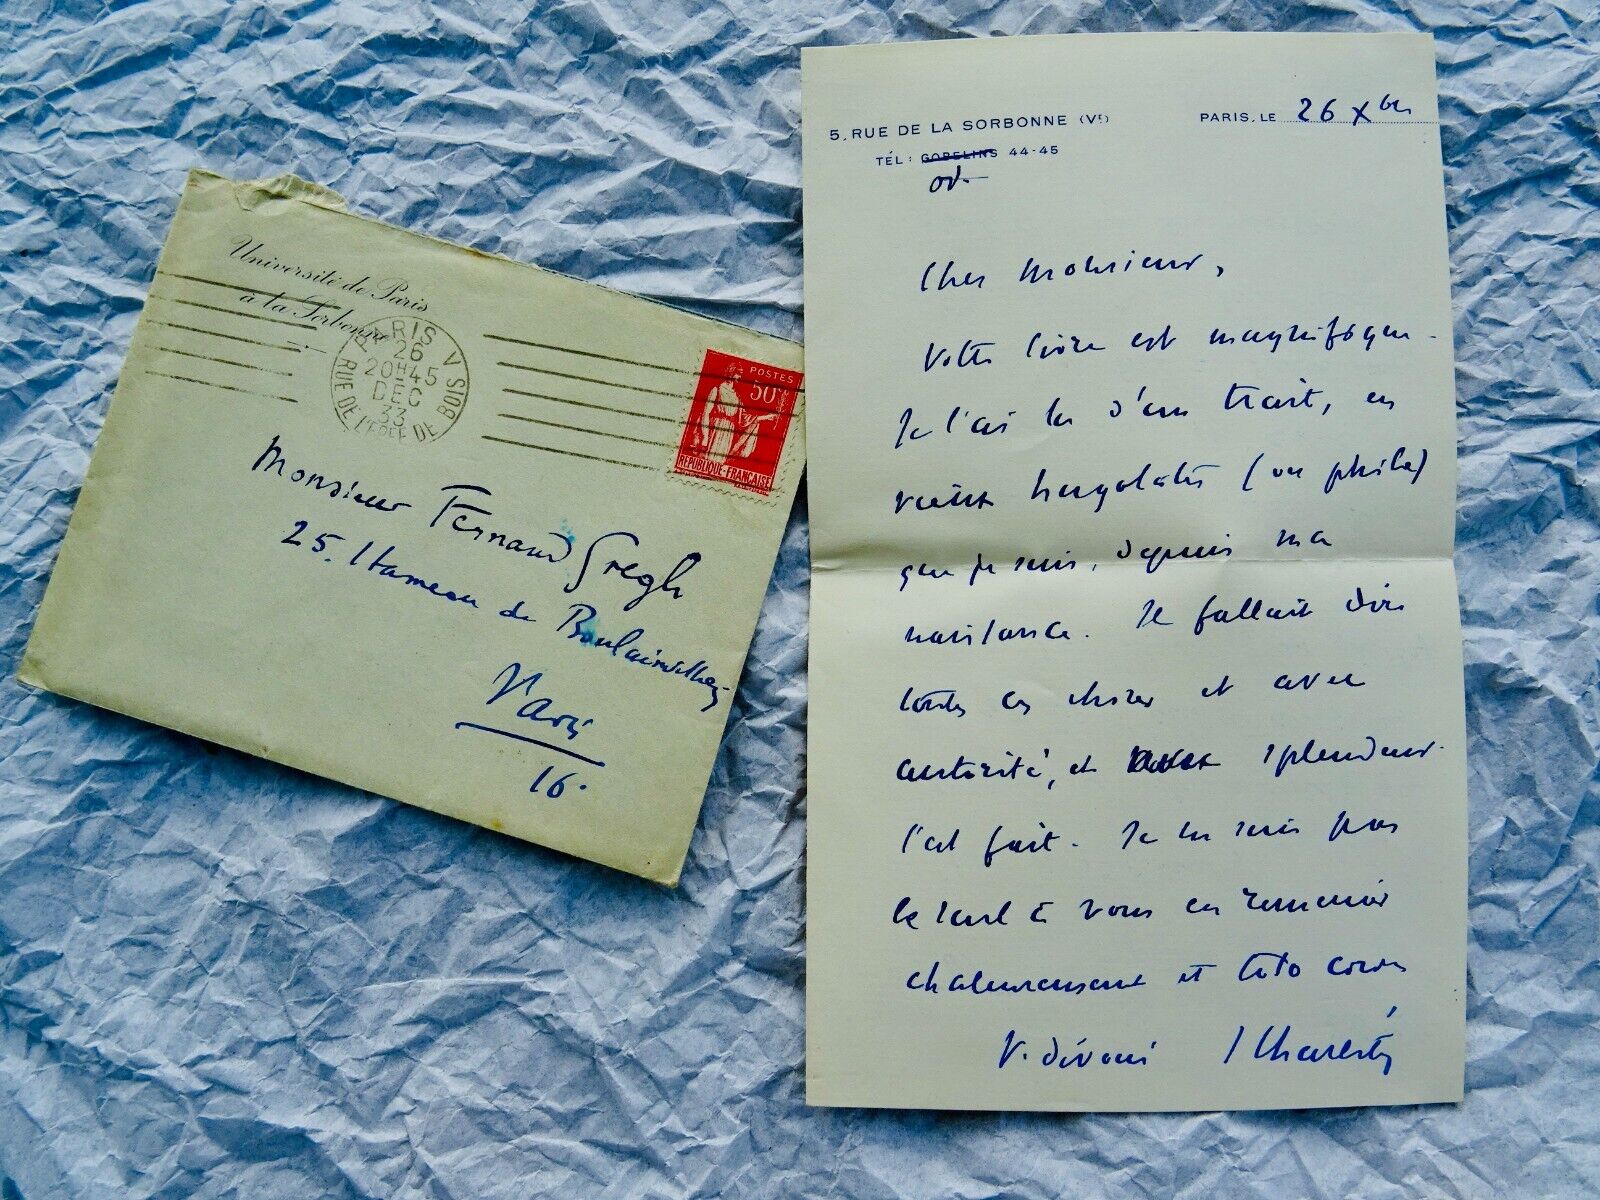 Université de Paris
à la Sorbonne
PARIS V
26
20H45
DEC
33
RUE DE L'EPEE DE BOIS
POSTES
50c
REPUBLIQUE-FRANÇAISE
Monsieur Fernand Gregh
25. Hameau de Boulainvilliers
Paris
16.
5, RUE DE LA SORBONNE (Ve)
PARIS, LE 26 Xbre
TÉL : GOBELINS 44-45
od.
Cher Monsieur,
Votre livre est magnifique.
Je l'ai lu d'un trait, en
vieux hugolâtre (ou phile)
que je suis, depuis ma
naissance. Il fallait dire
toutes ces choses et avec
autorité, et avec splendeur.
C'est fait. Je ne suis pas
le seul à vous en remercier
chaleureusement et toto corde
V. dévoué S Charléty